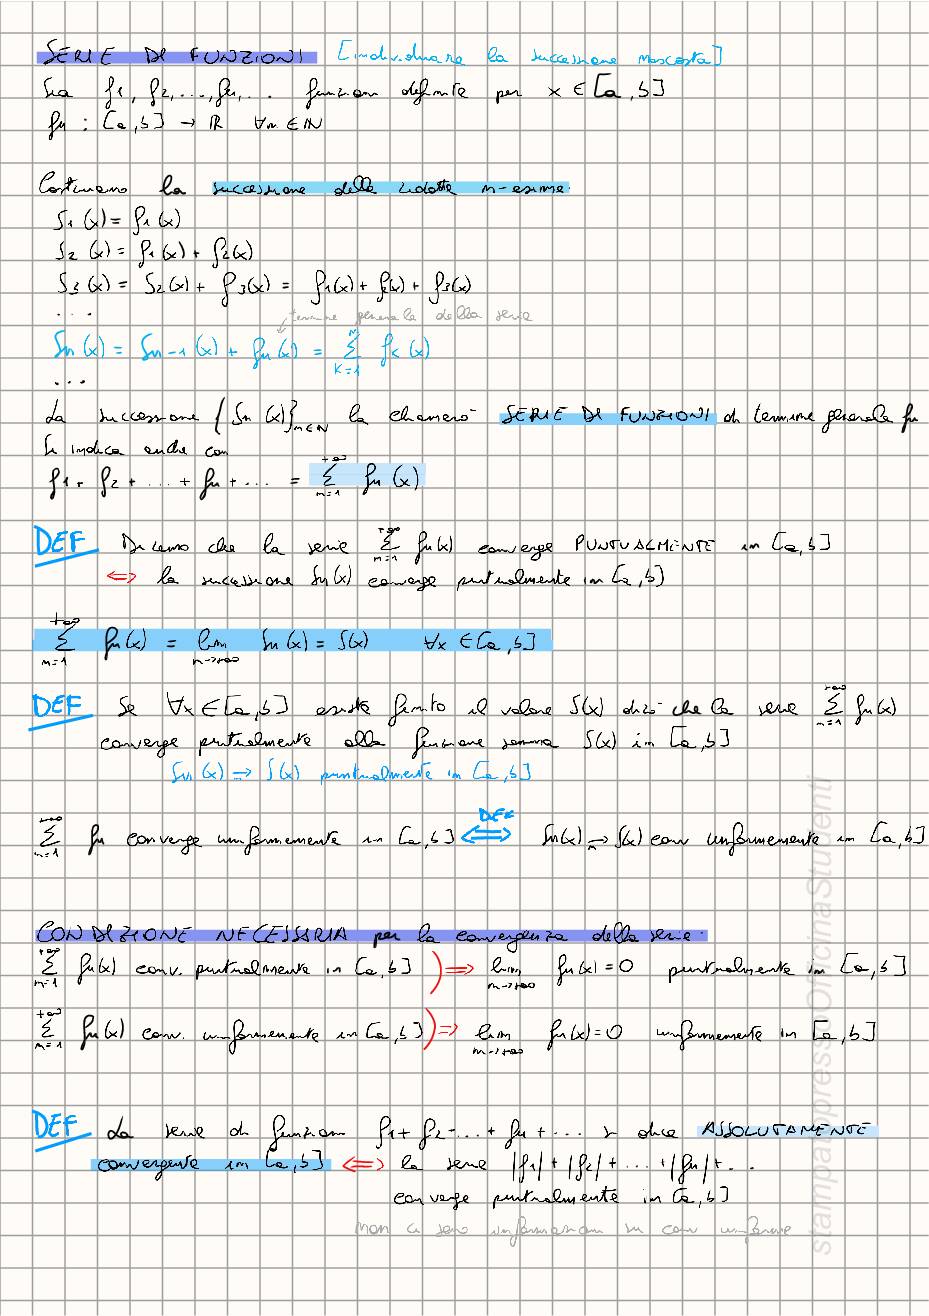 SERIE DI FUNZIONI [individuare la successione nascosta]
Sia f1, f2, ..., fn, ... funzioni definite per x ∈ [a, b]
fn : [a, b] → ℝ ∀n ∈ ℕ
Costruiamo la successione delle ridotte n-esime.
S1 (x) = f1 (x)
S2 (x) = f1 (x) + f2(x)
S3 (x) = S2(x) + f3(x) = f1(x) + f2(x) + f3(x)
...
termine generale della serie
Sn(x) = Sn-1 (x) + fn(x) = ∑_{k=1}^{n} fk (x)
...
La successione {Sn (x)}_{n∈ℕ} la chiamerò SERIE DI FUNZIONI di termine generale fn
Si indica anche con
f1 + f2 + ... + fn + ... = ∑_{n=1}^{+∞} fn (x)
DEF Diciamo che la serie ∑_{n=1}^{+∞} fn(x) converge PUNTUALMENTE in [a, b]
⇔ la successione Sn(x) converge puntualmente in [a, b]
∑_{n=1}^{+∞} fn(x) = lim_{n→+∞} Sn(x) = S(x) ∀x ∈ [a, b]
DEF Se ∀x ∈ [a, b] esiste finito il valore S(x) dirò che la serie ∑_{n=1}^{+∞} fn(x)
converge puntualmente alla funzione somma S(x) in [a, b]
Sn (x) → S(x) puntualmente in [a, b]
DEF
∑_{n=1}^{+∞} fn converge uniformemente in [a, b] ⟺ Sn(x) → S(x) conv uniformemente in [a, b]
CONDIZIONE NECESSARIA per la convergenza della serie.
∑_{n=1}^{+∞} fn(x) conv. puntualmente in [a, b] ) ⇒ lim_{n→+∞} fn(x) = 0 puntualmente in [a, b]
∑_{n=1}^{+∞} fn(x) conv. uniformemente in [a, b] ) ⇒ lim_{n→+∞} fn(x) = 0 uniformemente in [a, b]
DEF La serie di funzioni f1 + f2 ... + fn + ... si dice ASSOLUTAMENTE
convergente in [a, b] ⇔ la serie |f1| + |f2| + ... + |fn| + ..
converge puntualmente in [a, b]
non ci sono informazioni su conv uniforme
stampatoappressoOfficinaStudenti